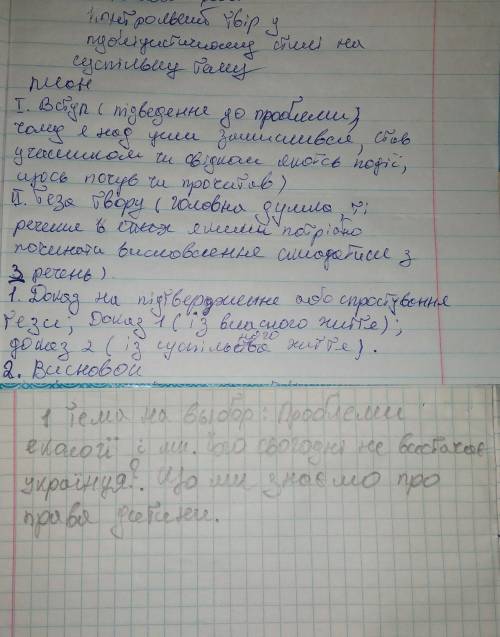 Контрольний твір у
публіцистичному стилі на
суспільну тему
План
I. Вступ (підведення до проблеми,
чому я над цим замислився, став
учасником чи свідком якоїсь події,
щось почув чи прочитав)
II. Теза твору (головна думка, ті
речення в яких потрібно
починати висловлення складатися з
3 речень).
1. Доказ на підтвердження або спростування
тези, Доказ 1 (із власного життя);
доказ 2 (із суспільного життя).
2. Висновок
1 тема на выбор: Проблеми
екології і ми. Чого сьогодні не вистачає
українцям? Що ми знаємо про
права дитини.